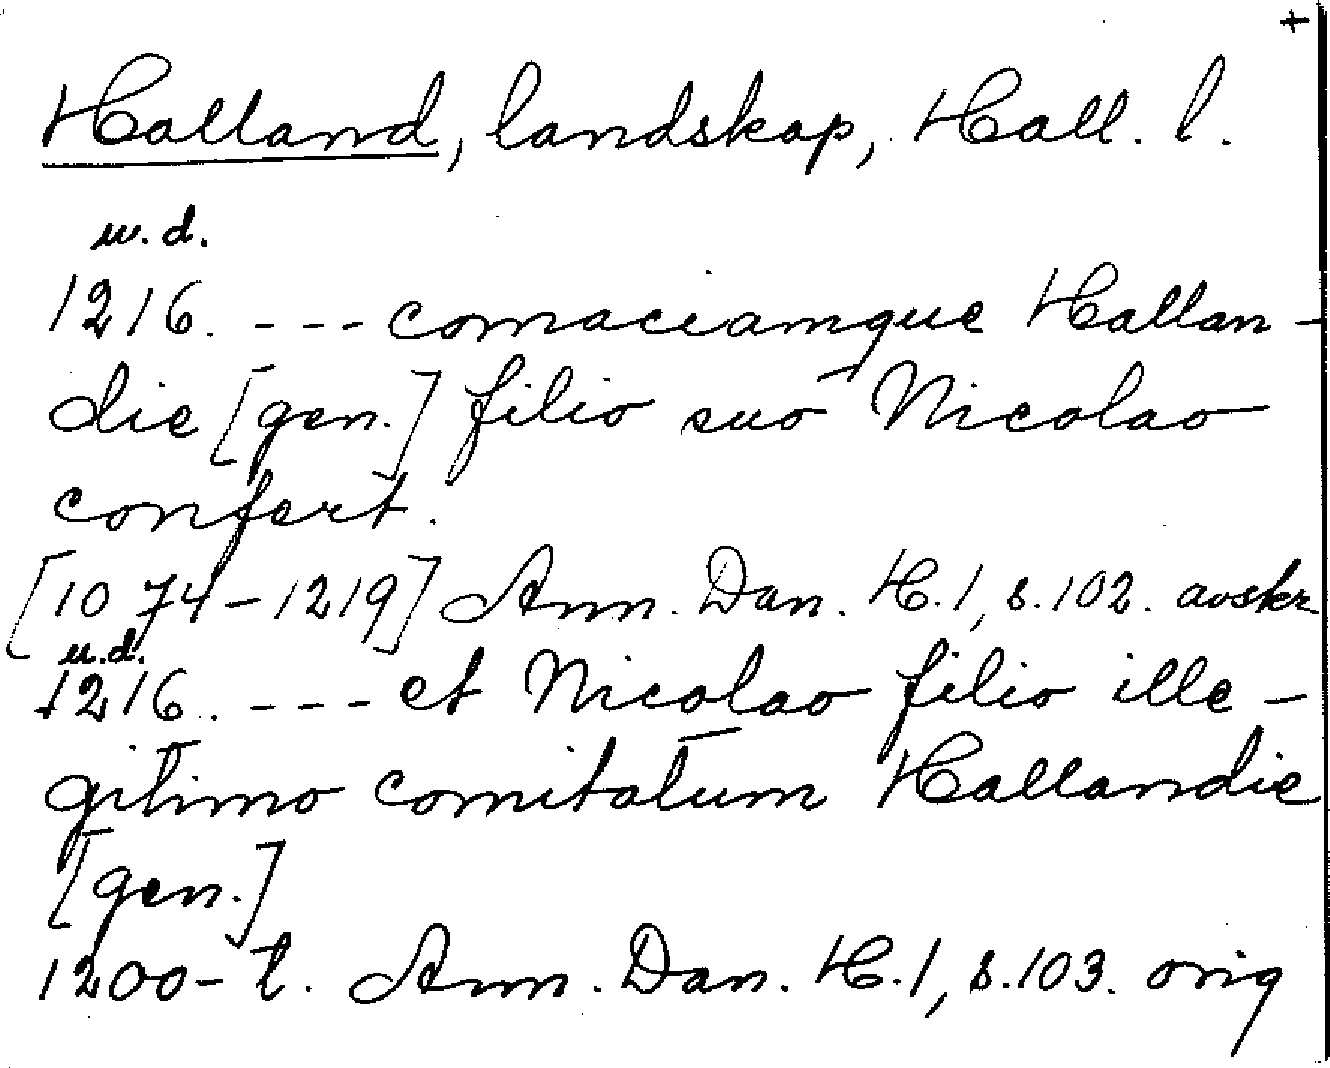 +
Halland, landskap, Hall. l.
u.d.
1216. --- comaciamque Hallan-
die [gen.] filio suo Nicolao
confert.
[1074-1219] Ann. Dan. H. 1, s. 102. avskr
u.d.
1216. --- et Nicolao filio ille-
gitimo comitatum Hallandie
[gen.]
1200-t. Ann. Dan. H. 1, s. 103. orig